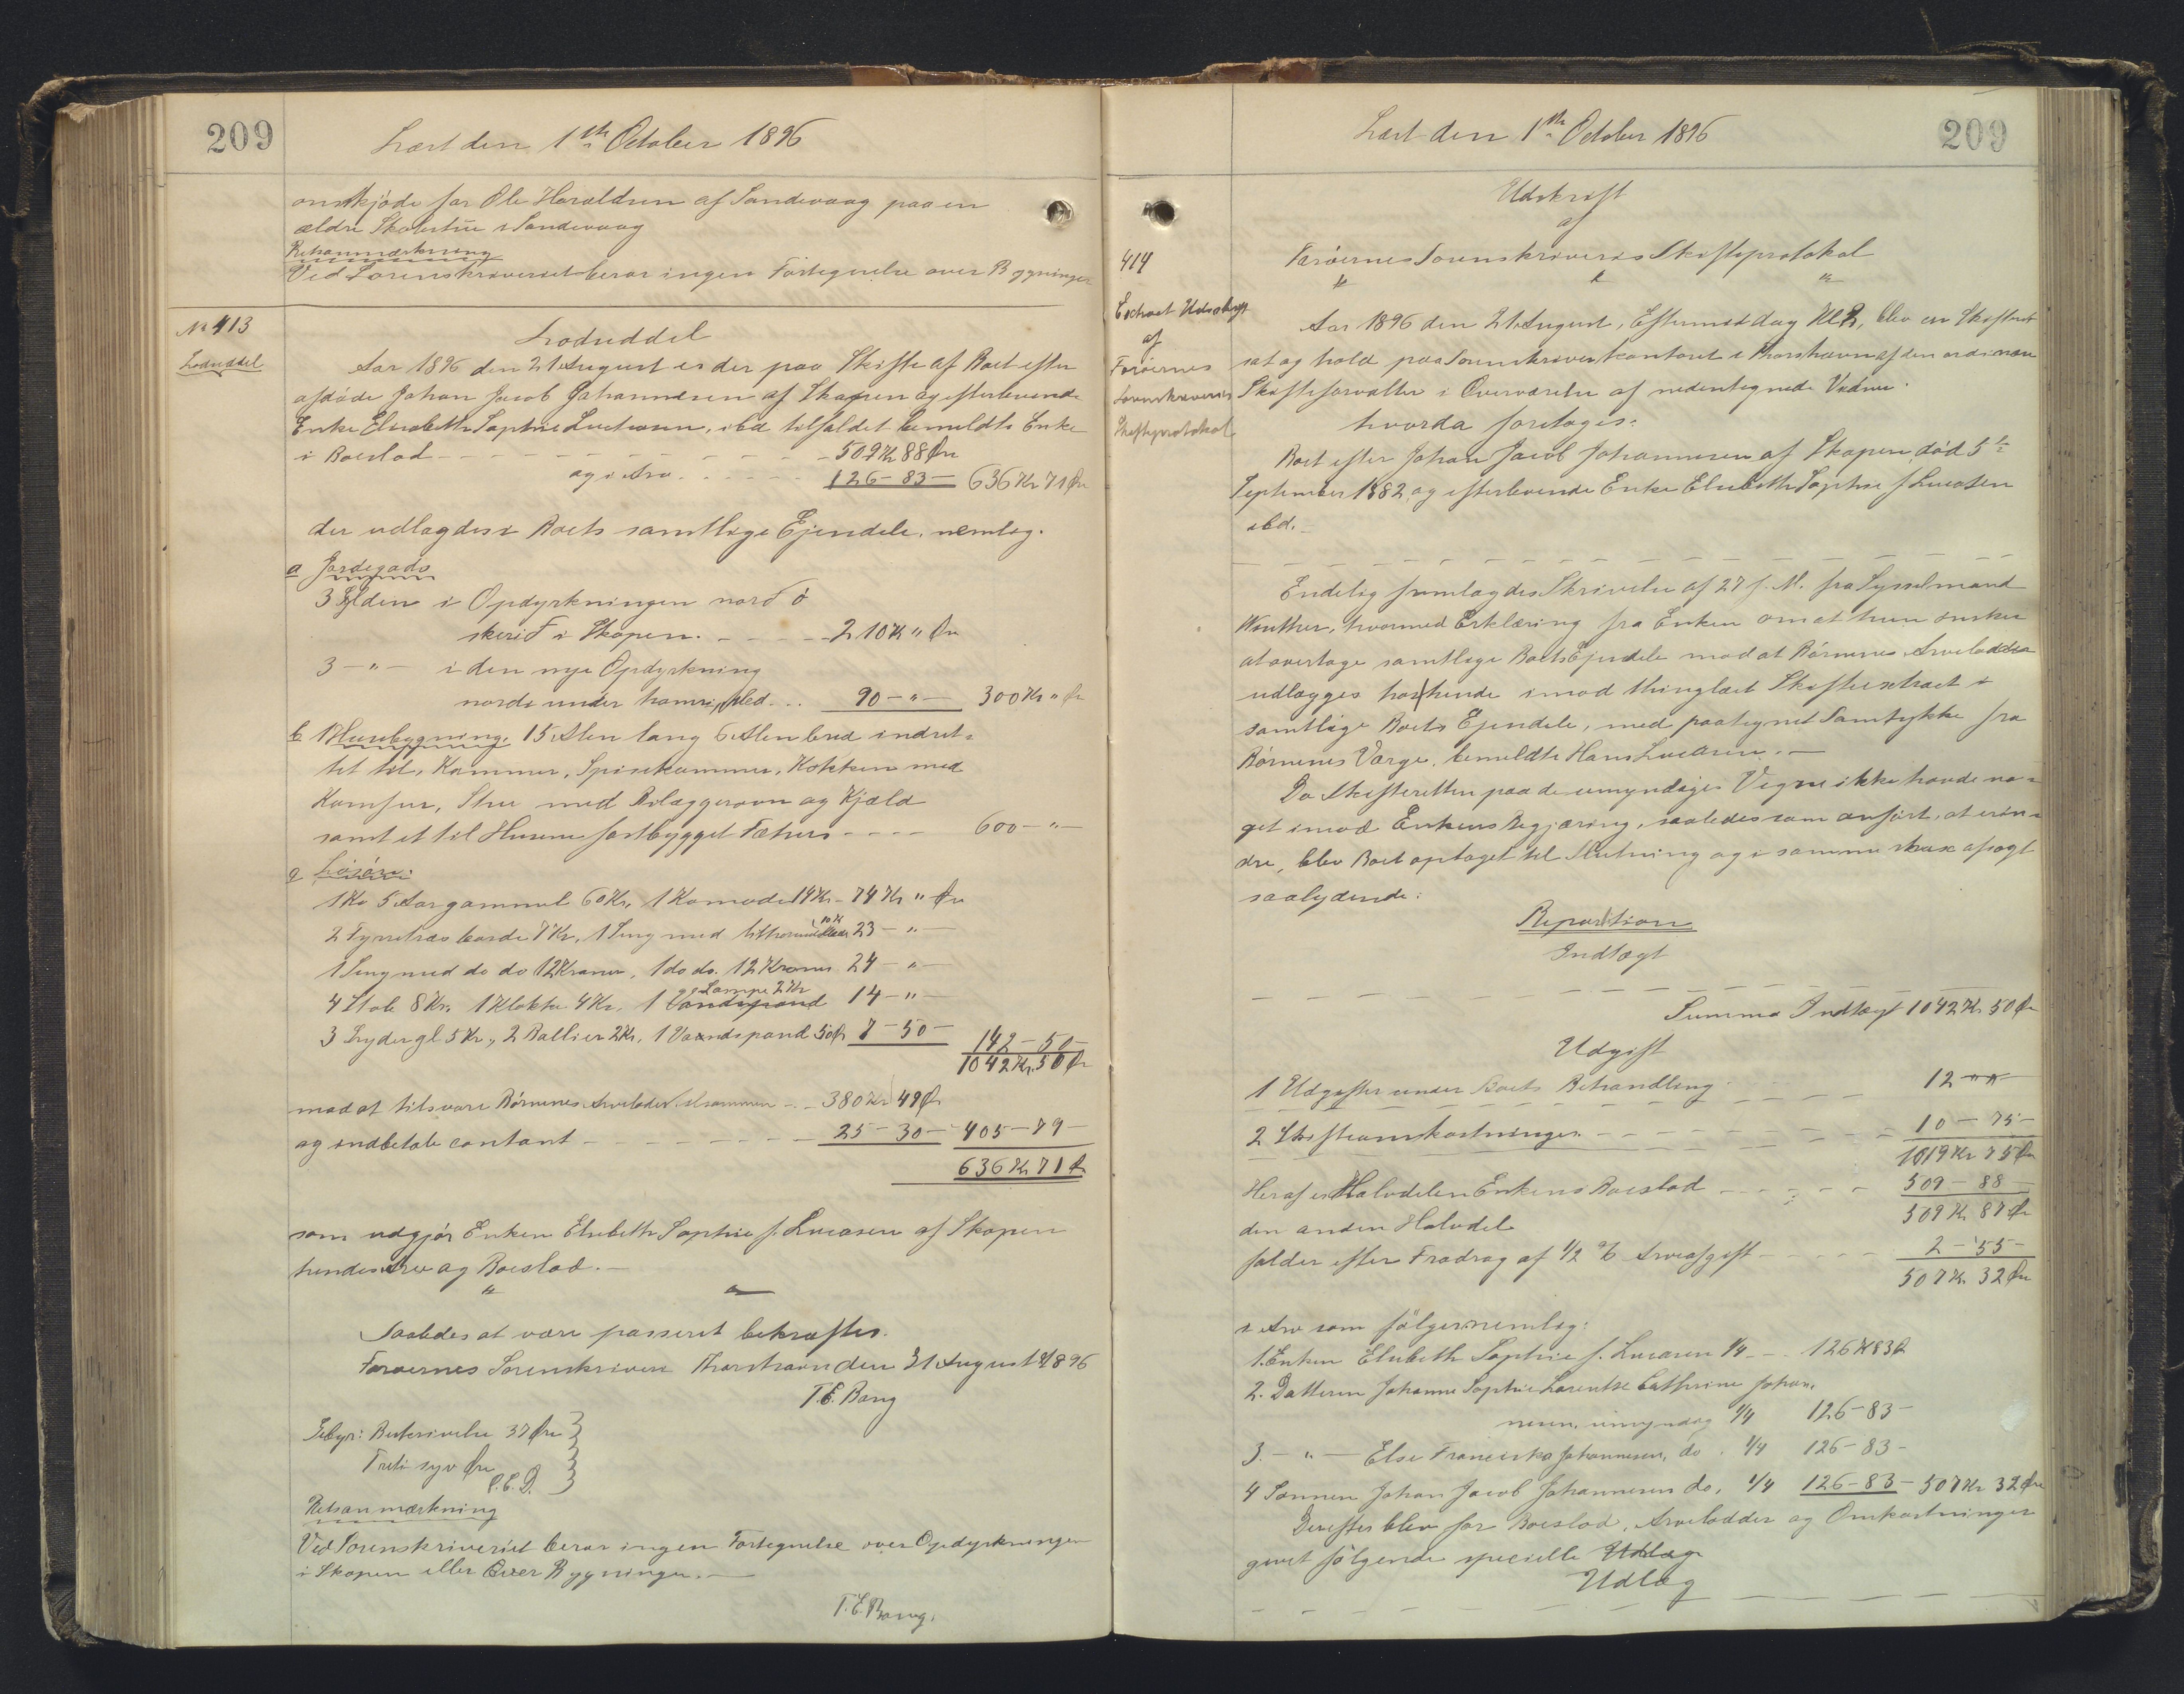 209
Læst den 1th October 1896
omskjøde for Ole Haraldsen af Sandevaag paa en
ældre Skolestue i Sandevaag
Retsanmærkning
Ved Sorenskriveriet beror ingen Fortegnelse over Bygninger
No 413
Lodseddel
Lodseddel
Aar 1896 den 21 August er der paa Skifte af Boet efter
afdøde Johan Jacob Johannesen af Skopen og efterlevende
Enke Elsebeth Sophie Lucasen, ibd tilfaldet bemeldte Enke
i Boeslod - - - 509 Kr 88 Øre
og i Arv - - - 126 - 83 - 636 Kr 71 Øre
der udlagdes i Boets samtlige Ejendele, nemlig.
a Jordegods
3 Gylden i Opdyrkningen nord ö
skerid i Skopen. - - - 210 Kr " Øre
3 - " - i den nye Opdyrkning
nordi under hamri, ibd. - - 90 - " - 300 Kr " Ør
b. 1 Husebygning 15 Alen lang 6 Alen bred indret-
tet til, Kammer, Spisekammer, Køkken med
Komfur, Stue med Bilæggerovn og Kjæld
samt et til Husene fastbygget Fæhus - - - 600 - " -
c Løsøre:
1 Ko 5 Aar gammel 60 Kr, 1 Komode 14 Kr - 74 Kr " Øre
2 Fyrretræs borde 7 Kr, 1 Seng med tilhørende Klæder 23 - " -
1 Seng med do do 12 Kroner, 1 do do. 12 Kroner 24 - " -
4 Stole 8 Kr, 1 Klokke 4 Kr, 1 Vandspand Lampe 2 Kr 14 - " -
3 Gryder gl 5 Kr, 2 Ballier 2 Kr, 1 Vandspand 50 Ør 7 - 50 - 142 - 50 -
1042 Kr. 50 Ør
mod at tilsvare Børnenes Arvelodder tilsammen - - 380 Kr 49 Ør
og indbetale contant - - - 25 - 30 - 405 - 79 -
636 Kr 71 Ør
som udgjør Enken Elsebeth Sophie f. Lucasen af Skopen
hendes Arv og Boeslod. -
Saaledes at være passeret bekræftes.
Færøernes Sorenskriveri Thorshavn den 31 August 1896
T. E. Bang
Gebyr: Beskrivelse 37 Øre
Treti syv Øre
Retsanmærkning
Ved Sorenskriveriet beror ingen Fortegnelse over Opdyrkningen
i Skopen eller over Bygninger. -
T. E. Bang.
Læst den 1th October 1896
209
414
Extract Udskrift
af
Færøernes
Sorenskriveris
Skifteprotokol
Udskrift
af
Færøernes Sorenskriveris Skifteprotokol
Aar 1896 den 21 August, Eftermiddag Kl 2, blev en Skifteret
sat og hold paa Sorenskriverkontoret i Thorshavn af den ordinære
Skifteforvalter i Overværelse af nedentegnede Vidner.
hvorda foretoges:
Boet efter Johan Jacob Johannesen af Skopen død 5te
September 1882 og efterlevende Enke Elsebeth Sophie f. Lucasen
ibd. -
Endelig fremlagdes Skrivelse af 27 f. M. fra Sysselmand
Winther, hvormed Erklæring fra Enken om at hun ønsker
at overtage samtlige Boets Ejendele mod at Børnenes Arvelodder
udlægges hos hende imod thinglæst Skifteextract i
samtlige Boets Ejendele, med paategnet Samtykke fra
Børnenes Værge, bemeldte Hans Lucasen. -
Da Skifteretten paa de umyndiges Vegne ikke havde no-
get imod Enkens Begjæring, saaledes som anført, at erin-
dre, blev Boet optaget til Slutning og i samme strax afsagt
saalydende:
Repartition
Indtægt
Summa Indtægt 1042 Kr 50 Ør
Udgift
1 Udgifter under Boets Behandling - - - 12 - " -
2 Skifteomkostninger - - - 10 - 75 -
1019 Kr 75 Øre
Heraf er Halvdelen Enkens Boeslod - - - 509 - 88 -
den anden Halvdel 509 Kr 87 Ør
falder efter Fradrag af 1/2 % Arveafgift - - - 2 - 55 -
507 Kr. 32 Øre
i Arv som følger nemlig:
1. Enken Elsebeth Sophie f. Lucasen 1/4 - - 126 Kr 83 Ør
2. Datteren Johanne Sophie Larentse Cathrine Johan-
nesen, umyndig 1/4 126 - 83 -
3. - " - Else Franciska Johannesen, do. 1/4 126 - 83 -
4 Sønnen Johan Jacob Johannesen do, 1/4 126 - 83 - 507 Kr 32 Øre
Derefter blev for Boeslod, Arvelodder og Omkostninger
givet følgende specielle Udlæg
Udlæg